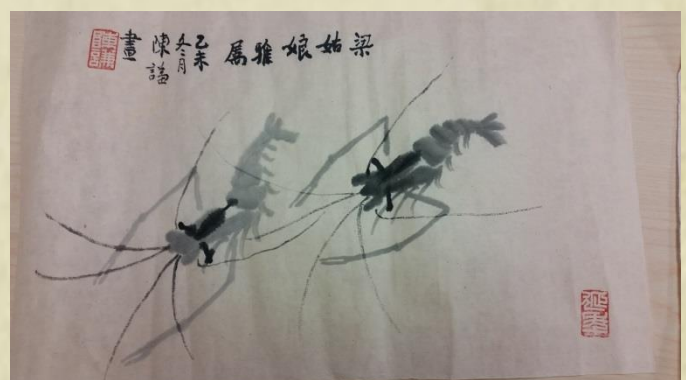 梁姑娘雅属
乙未
冬二月
陳謐
畫